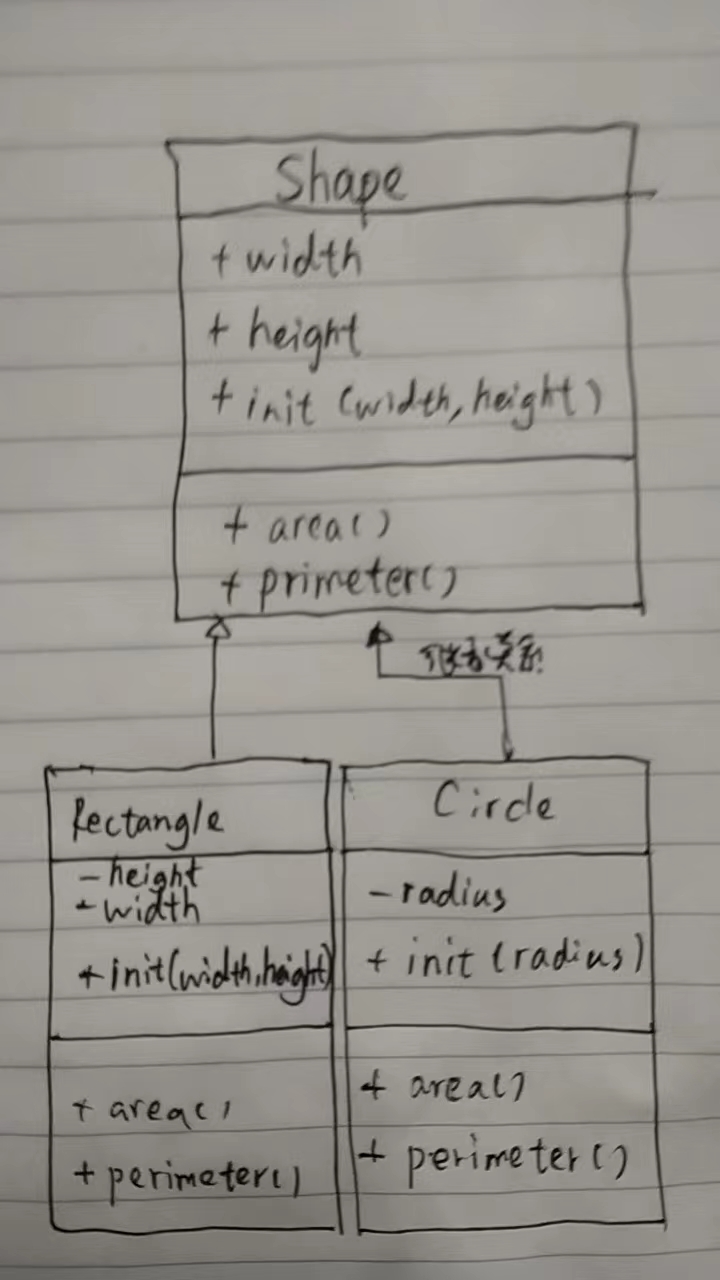 Shape
+ width
+ height
+ init (width, height)
+ area()
+ primeter()
关系
Rectangle
- height
- width
+ init(width, height)
+ area()
+ perimeter()
Circle
- radius
+ init (radius)
+ area()
+ perimeter()